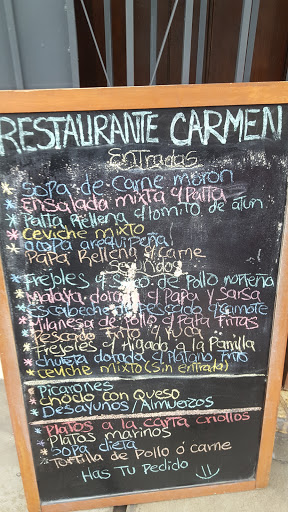 RESTAURANTE CARMEN
Entradas
* Sopa de Carne morón
* Ensalada mixta c/ Palta
* Palta Rellena c/ lomito de atum
* Ceviche mixto
* Sopa arequipeña
* Papa Rellena c/ carne
Segundos
* Frejoles c/ seco de Pollo norteña
* Malaya dorada c/ Papa y sarsa
* escabeche de Pescado
* Milanesa de Pollo c/ Papa fritas
* Pescado frito c/
* Frejoles c/ Higado a la Parrilla
* chuleta dorada c/ Platano frito
* Ceviche mixto (sin entrada)
* Picarones
* choclo con Queso
* Desayunos / Almuerzos
* Platos a la carta criollos
* Platos marinos
* Sopa dieta
* Tortilla de Pollo ó carne
Has Tu Pedido ↓